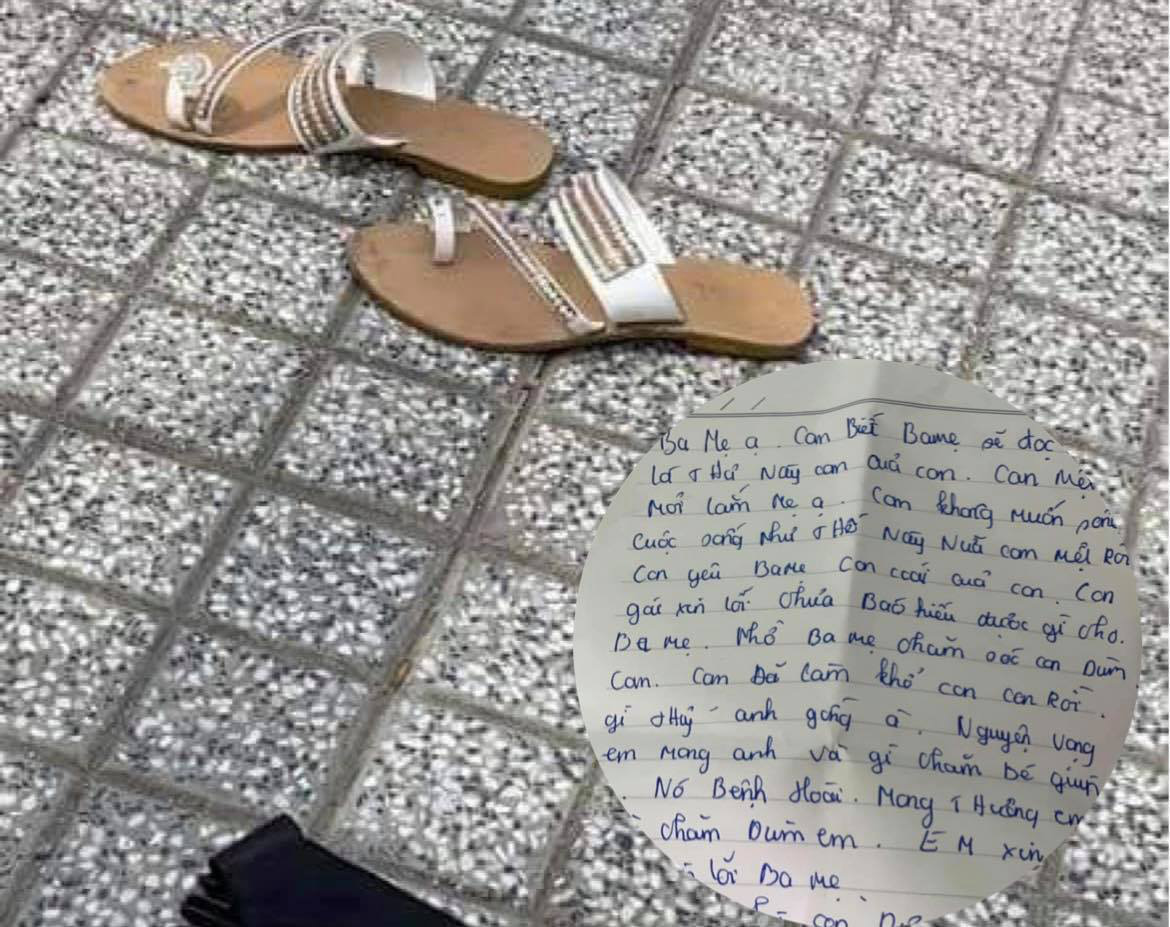 Ba Mẹ ạ. Con Biết Bamẹ sẽ đọc
lá Thư Này con quả con. Con Mệt
Mỏi lắm Mẹ ạ. Con không Muốn
cuộc sống Như Thế Này Nữa con mệt Rồi
Con yêu BaMẹ Con coái quả con. Con
gái xin lỗi chưa Baó hiếu được gì cho.
Ba Mẹ. Nhờ Ba mẹ chăm sóc con Dùm
Con. Con Đã làm khổ con con Rồi.
gì Thuỷ anh gống à. Nguyện vọng
em Mong anh và gì chăm bé giùm
Nó Bệnh Hoài. Mong Thương em
chăm Dùm em. EM xin
lỗi Ba mẹ
con